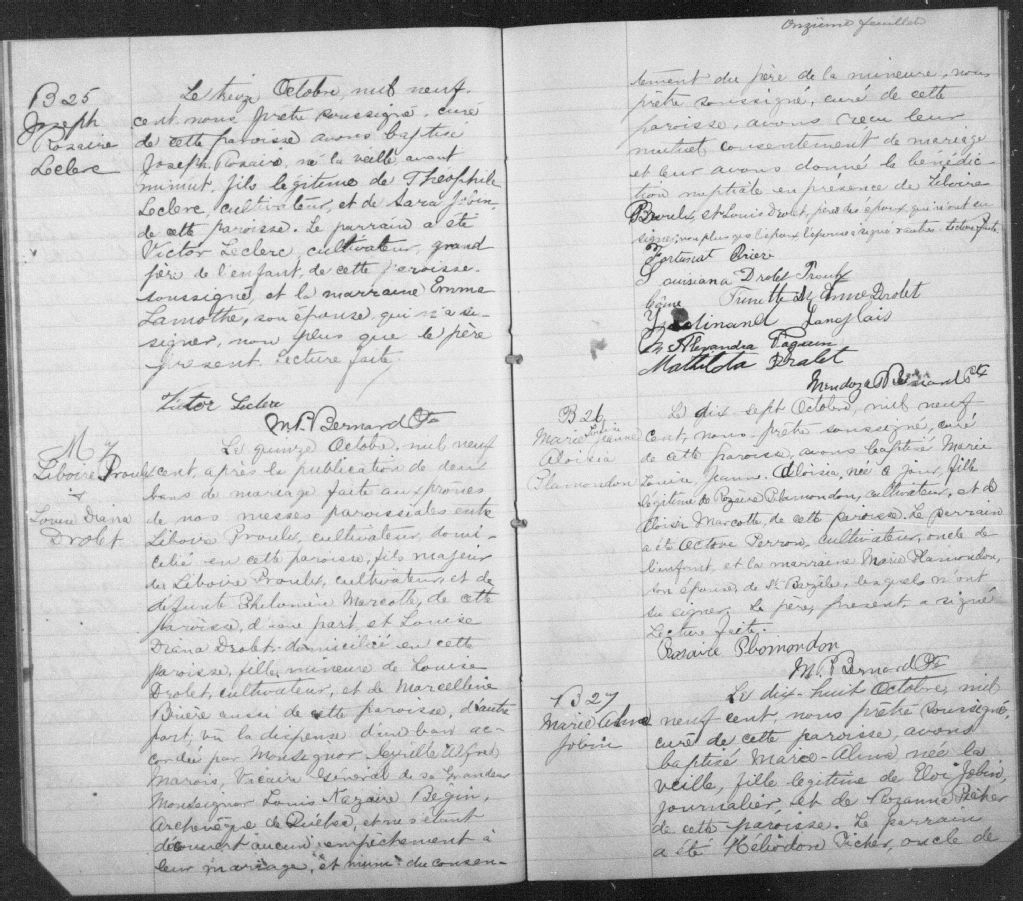 B 25
Joseph
Rosaire
Leclerc
Le treize Octobre, mil neuf-
cent, nous prêtre soussigné, curé
de cette paroisse avons baptisé
Joseph, Rosaire, né la veille avant
minuit, fils légitime de Théophile
Leclerc, cultivateur, et de Sara Jobin,
de cette paroisse. Le parrain a été
Victor Leclerc, cultivateur, grand
père de l'enfant, de cette paroisse.
soussigné, et la marraine Emma
Lamothe, son épouse, qui n'a su
signer, non plus que le père
présent. Lecture faite
Victor Leclerc
M.P. Bernard Ptre
M 7
Liboire Proulx
&
Louise Diana
Drolet
Le quinze Octobre, mil neuf
cent, après la publication de deux
bans de mariage faite aux prônes
de nos messes paroissiales entre
Liboire Proulx, cultivateur, domi-
cilié en cette paroisse, fils majeur
de Liboire Proulx, cultivateur, et de
défunte Philomène Marcotte, de cette
paroisse, d'une part, et Louise
Diana Drolet, domiciliée en cette
paroisse, fille mineure de Louis
Drolet, cultivateur, et de Marcelline
Brière aussi de cette paroisse, d'autre
part, vu la dispense d'un ban ac-
cordée par Monsignor Cyrille Alfred
Marois, Vicaire Général de Sa Grandeur
Monseignor Louis Nazaire Bégin,
Archevêque de Québec, et ne s'étant
découvert aucun empêchement à
leur mariage, et muni du consen-
Onzième feuillet
tement du père de la mineure, nous
prêtre soussigné, curé de cette
paroisse, avons reçu leur
mutuel consentement de mariage
et leur avons donné la bénédic-
tion nuptiale en présence de Liboire
Proulx, et Louis Drolet, pères des époux qui n'ont su
signer, non plus que l'époux. L'épouse a signé Lecture faite.
Fortunat Brière
Louisiana Drolet Proulx
Anne Drolet
Ferdinand Langlais
Alexandra Paquin
Mathilda Drolet
Mendoza P. Bernard Ptre
B 26
Marie Louise
Jeanne
Aloisia
Plamondon
Le dix-sept Octobre, mil neuf
cent, nous prêtre soussigné, curé
de cette paroisse, avons baptisé Marie
Louise, Jeanne, Aloisia, née ce jour, fille
légitime de Rosaire Plamondon, cultivateur, et de
Eloise Marcotte, de cette paroisse. Le parrain
a été Octave Perron, cultivateur, oncle de
l'enfant, et la marraine Marie Plamondon,
son épouse, de St Bazile, lesquels n'ont
su signer. Le père, présent, a signé
Lecture faite.
Rosaire Plomondon
M.P. Bernard Ptre
B 27
Marie Alma
Jobin
Le dix-huit Octobre, mil
neuf cent, nous prêtre soussigné,
curé de cette paroisse, avons
baptisé Marie-Alma née la
veille, fille légitime de Eloi Jobin,
journalier, et de Rozanna Picher
de cette paroisse. Le parrain
a été Héliodon Picher, oncle de